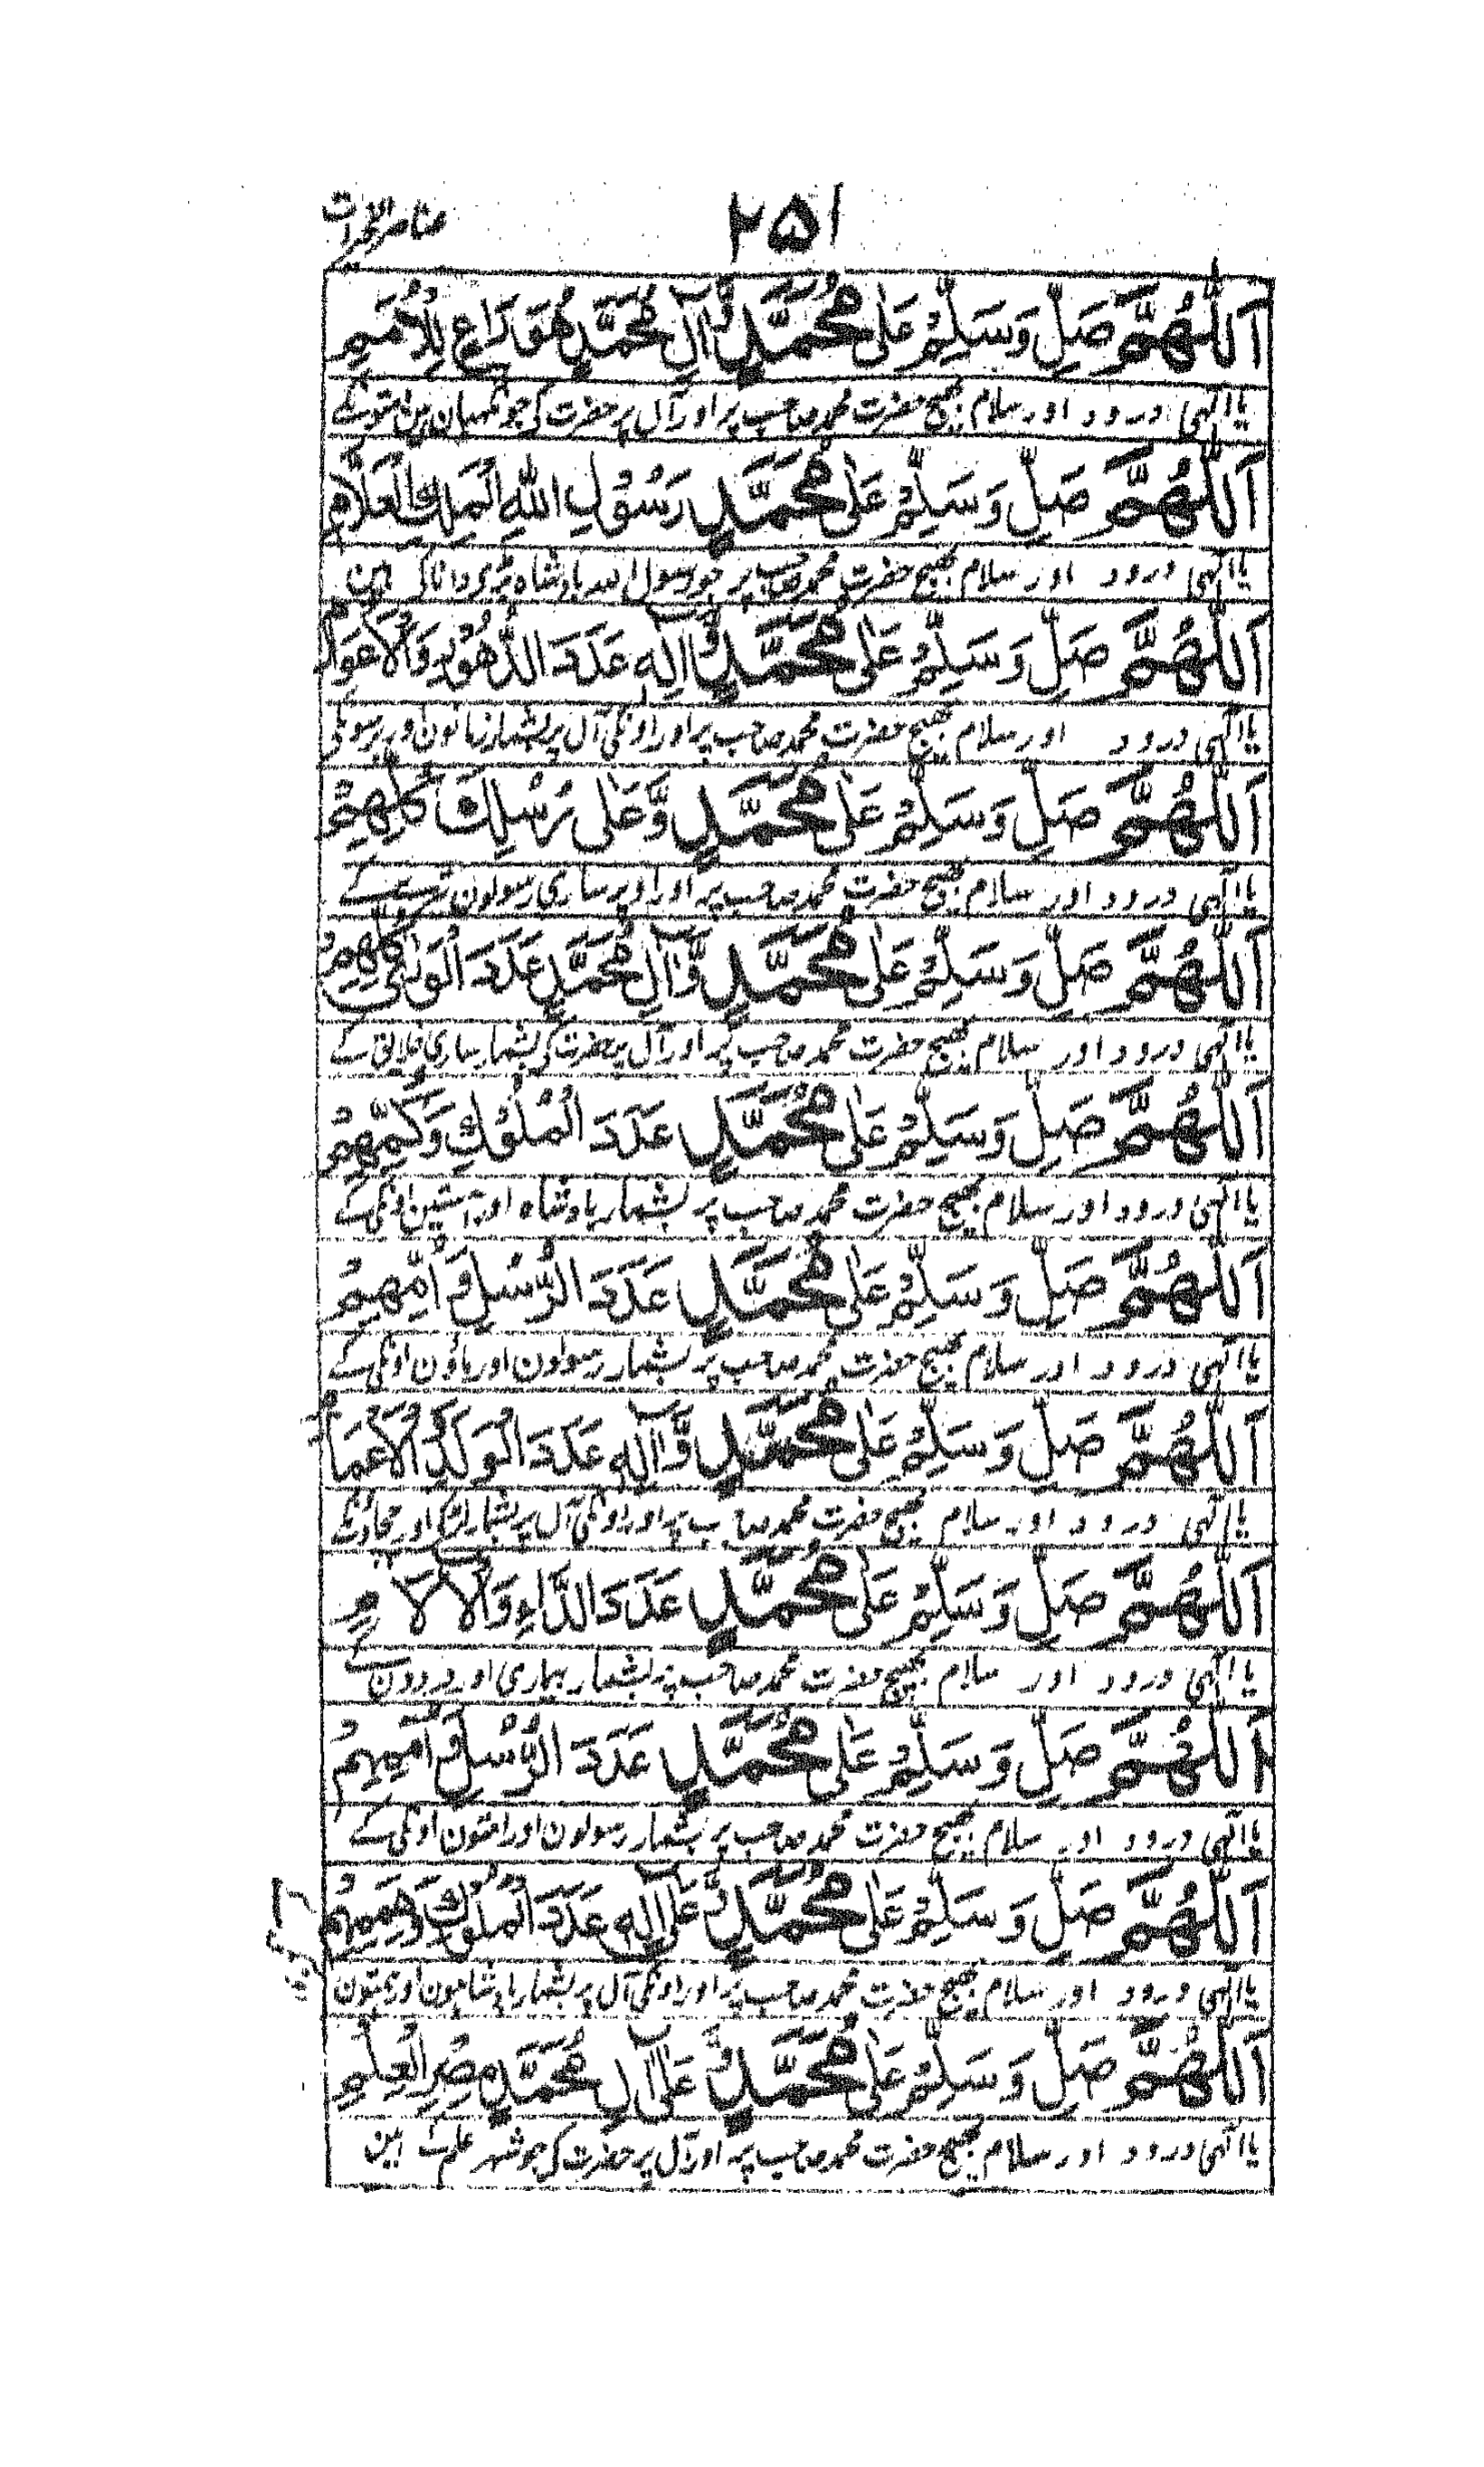 ۲۵۱
اَللّٰهُمَّ صَلِّ وَسَلِّمْ عَلٰى مُحَمَّدٍ وَّآلِ مُحَمَّدٍ هُوَ رَاعٍ لِلْاُمَمِ
یا الٰہی درود اور سلام بھیج حضرت محمد صاحب پر اور آل پر حضرت کی جو نگہبان ہین امتونکے
اَللّٰهُمَّ صَلِّ وَسَلِّمْ عَلٰى مُحَمَّدٍ رَسُوْلِ اللّٰهِ الْمَلِكِ الْعَلَّامِ
یا الٰہی درود اور سلام بھیج حضرت محمد صاحب پر جو رسول اللہ بادشاہ بڑی دانا کی ہین
اَللّٰهُمَّ صَلِّ وَسَلِّمْ عَلٰى مُحَمَّدٍ وَّاٰلِهٖ عَدَدَ الدُّهُوْرِ وَالْاَعْوَامِ
یا الٰہی درود اور سلام بھیج حضرت محمد صاحب پر اور اونکی آل پر بشمار زمانون اور برسونکی
اَللّٰهُمَّ صَلِّ وَسَلِّمْ عَلٰى مُحَمَّدٍ وَّعَلٰى رُسُلِكَ كُلِّهِمْ
یا الٰہی درود اور سلام بھیج حضرت محمد صاحب پر اور اوپر ساری رسولون کے
اَللّٰهُمَّ صَلِّ وَسَلِّمْ عَلٰى مُحَمَّدٍ وَّآلِ مُحَمَّدٍ عَدَدَ الْوَرٰى كُلِّهِمْ
یا الٰہی درود اور سلام بھیج حضرت محمد صاحب پر اور آل حضرت کی بشمار ساری خلایق کے
اَللّٰهُمَّ صَلِّ وَسَلِّمْ عَلٰى مُحَمَّدٍ عَدَدَ الْمُلُوْكِ وَكُمِّهِمْ
یا الٰہی درود اور سلام بھیج حضرت محمد صاحب پر بشمار بادشاہ اور آستین اونکی کے
اَللّٰهُمَّ صَلِّ وَسَلِّمْ عَلٰى مُحَمَّدٍ عَدَدَ الرُّسُلِ وَ اُمِّهِمْ
یا الٰہی درود اور سلام بھیج حضرت محمد صاحب پر بشمار رسولون اور ماؤن اونکی کے
اَللّٰهُمَّ صَلِّ وَسَلِّمْ عَلٰى مُحَمَّدٍ وَّاٰلِهٖ عَدَدَ الْوَلَدِ وَالْاَعْمَامِ
یا الٰہی درود اور سلام بھیج حضرت محمد صاحب پر اور اونکی آل پر بشمار لڑکی اور چچاونکے
اَللّٰهُمَّ صَلِّ وَسَلِّمْ عَلٰى مُحَمَّدٍ عَدَدَ الدَّاءِ وَالْاٰلَامِ
یا الٰہی درود اور سلام بھیج حضرت محمد صاحب پر بشمار بیماری اور دردون کے
اَللّٰهُمَّ صَلِّ وَسَلِّمْ عَلٰى مُحَمَّدٍ عَدَدَ الرُّسُلِ وَ اُمَمِهِمْ
یا الٰہی درود اور سلام بھیج حضرت محمد صاحب پر بشمار رسولون اور امتون اونکی کے
اَللّٰهُمَّ صَلِّ وَسَلِّمْ عَلٰى مُحَمَّدٍ وَّعَلٰى اٰلِهٖ عَدَدَ الْمُلُوْكِ وَهِمَمِهِمْ
یا الٰہی درود اور سلام بھیج حضرت محمد صاحب پر اور اونکی آل پر بشمار بادشاہون اور ہمتون
اَللّٰهُمَّ صَلِّ وَسَلِّمْ عَلٰى مُحَمَّدٍ وَّعَلٰى آلِ مُحَمَّدٍ مِصْرِ الْعِلْمِ
یا الٰہی درود اور سلام بھیج حضرت محمد صاحب پر اور آل پر حضرت کی جو شہر علم کے ہین